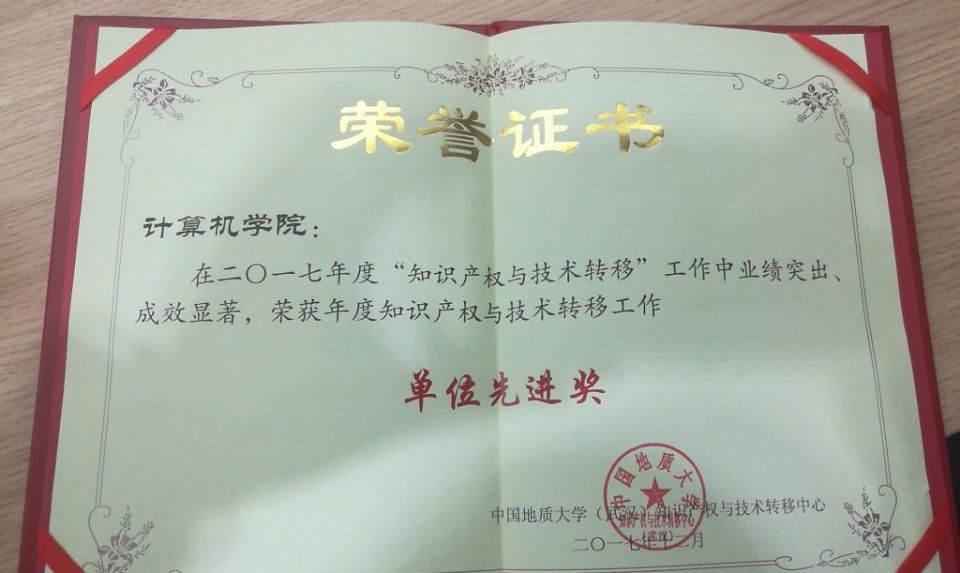 荣誉证书
计算机学院：
在二〇一七年度“知识产权与技术转移”工作中业绩突出、
成效显著，荣获年度知识产权与技术转移工作
单位先进奖
中国地质大学
中国地质大学（武汉）知识产权与技术转移中心
知识产权与技术转移中心
（武汉）
二〇一七年十二月